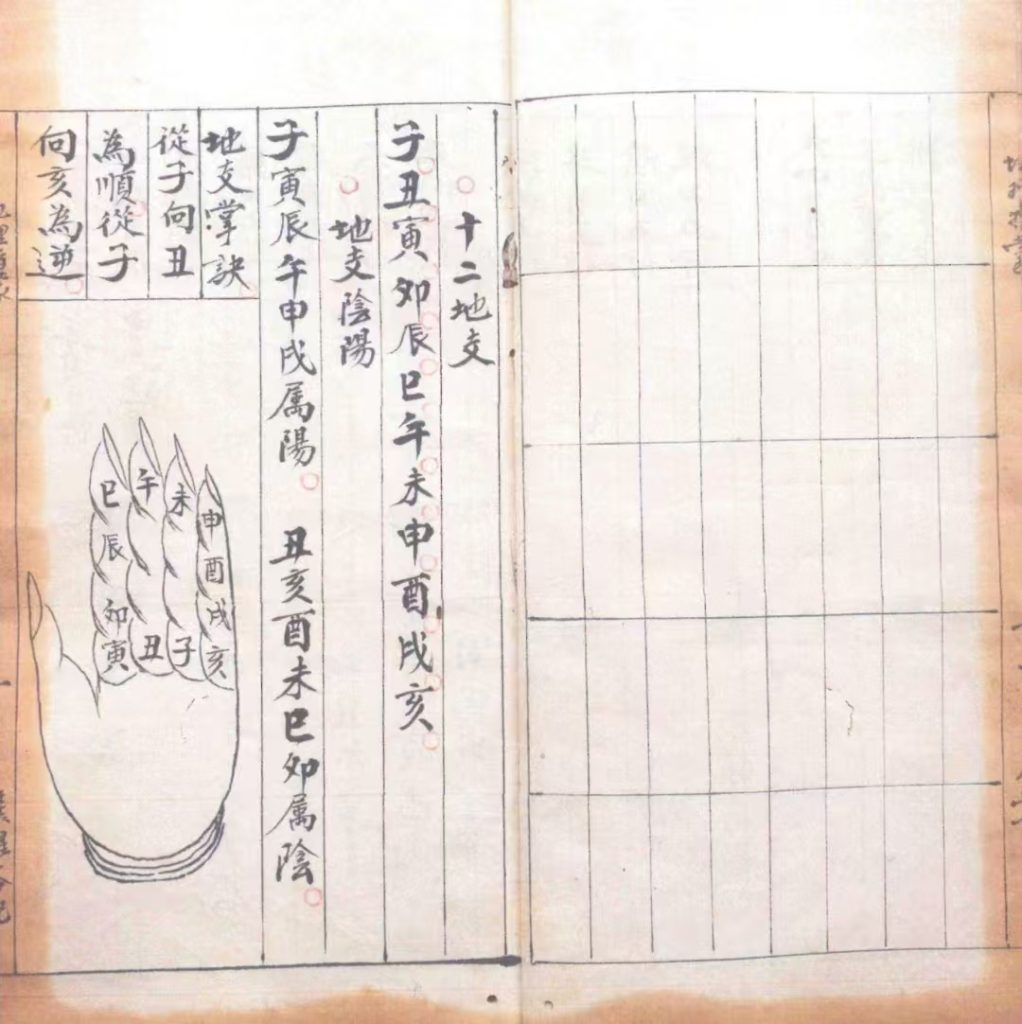 十二地支
子丑寅卯辰巳午未申酉戌亥
地支陰陽
子寅辰午申戌属陽 丑亥酉未巳卯属陰
地支掌訣
從子向丑
為順從子
向亥為逆
巳 午 未 申
辰 酉
卯 戌
寅 丑 子 亥